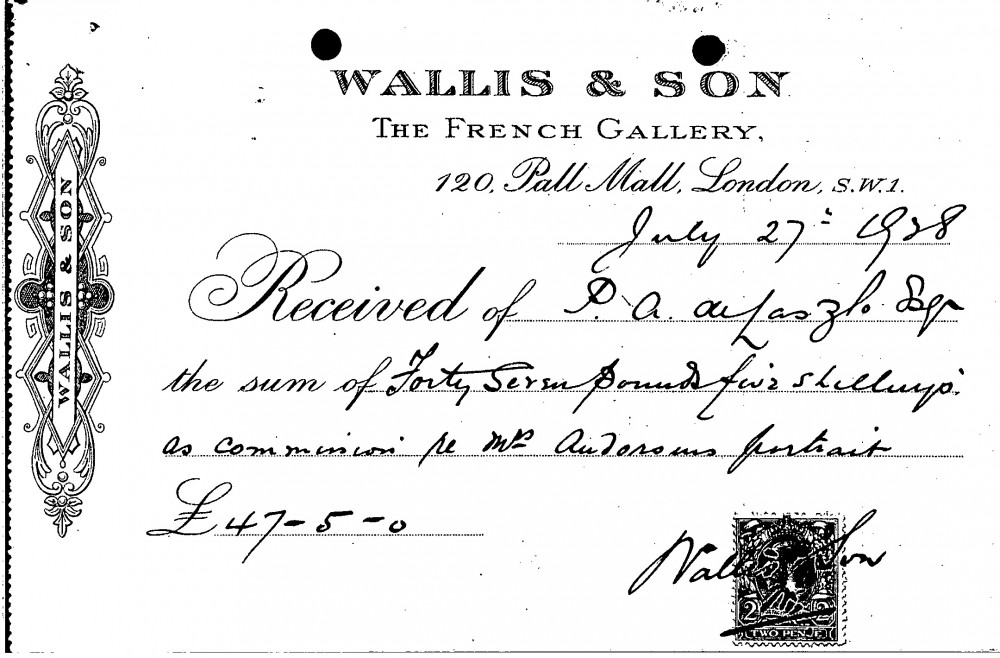 WALLIS & SON
THE FRENCH GALLERY,
120, Pall Mall, London, S.W.1.
July 27th 1928
WALLIS & SON
Received of P. A. de Laszlo Esqr
the sum of Forty Seven pounds five shillings
as commission re Mrs Andersons portrait
£ 47-5-0
Wallis & Son
2 2
TWO PENCE